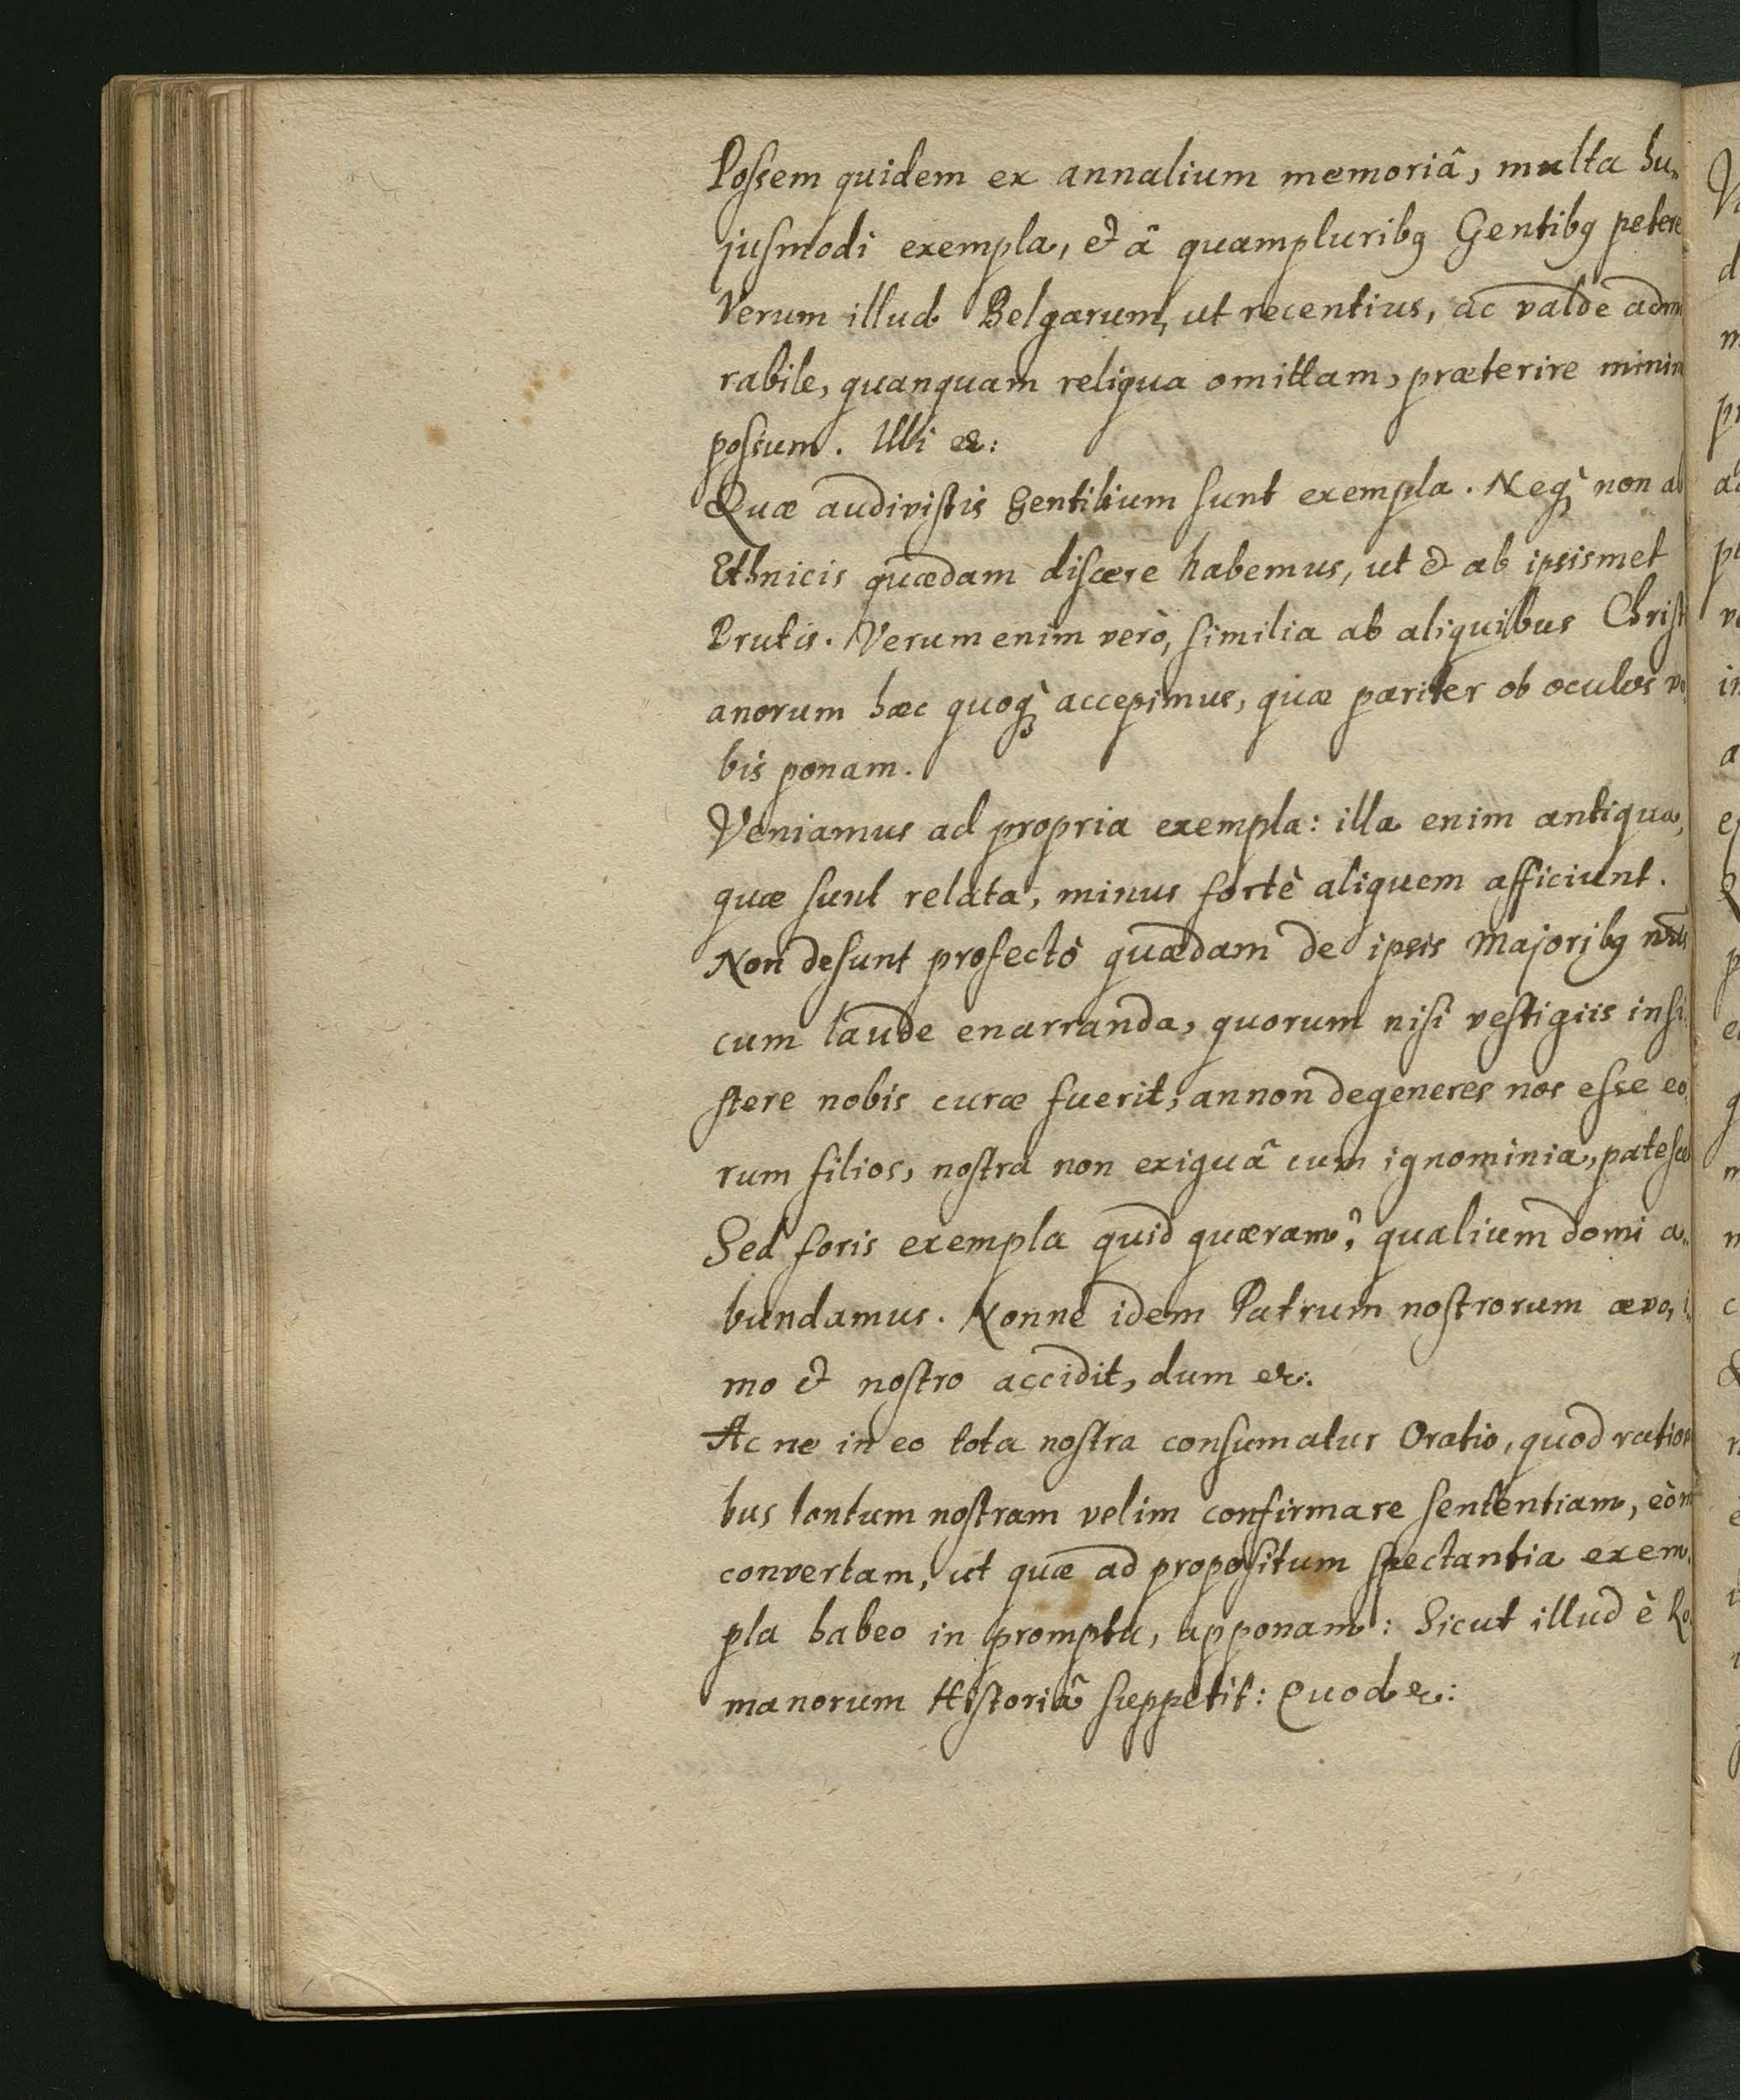 Possem quidem ex annalium memoriâ, multa hu„
jusmodi exempla, & â quampluribꝰ Gentibꝰ petere
Verum illud Belgarum, ut recentius, ac valde admi
rabile, quanquam reliqua omittam, præterire minim
possum. Ubi &c:
Quæ audivistis Gentilium sunt exempla. Neqꝫ non ab
Ethnicis quædam discere habemus, ut & ab ipsismet
Brutis. Verum enim verò, similia ab aliquibus Christi
anorum hæc quoqꝫ accepimus, quæ pariter ob oculos vo
bis ponam.
Veniamus ad propria exempla: illa enim antiqua,
quæ sunt relata, minus fortè aliquem afficiunt.
Non desunt profectò quædam de ipsis Majoribꝰ nris
cum laude enarranda, quorum nisi vestigiis insi
stere nobis curæ fuerit, annon degeneres nos esse eo
rum filios, nostra non exiguâ cum ignominia, patesce
Sed foris exempla quid quæram? qualium domi a„
bundamus. Nonne idem Patrum nostrorum ævo, i
mo & nostro accidit, dum &c:
Ac ne in eo tota nostra consumatur Oratio, quod ration
bus tantum nostram velim confirmare sententiam, eò m
convertam, ut quæ ad propositum spectantia exem
pla habeo in promptu, apponam: Sicut illud è Ro
manorum Historiâ suppetit: Quod &c: